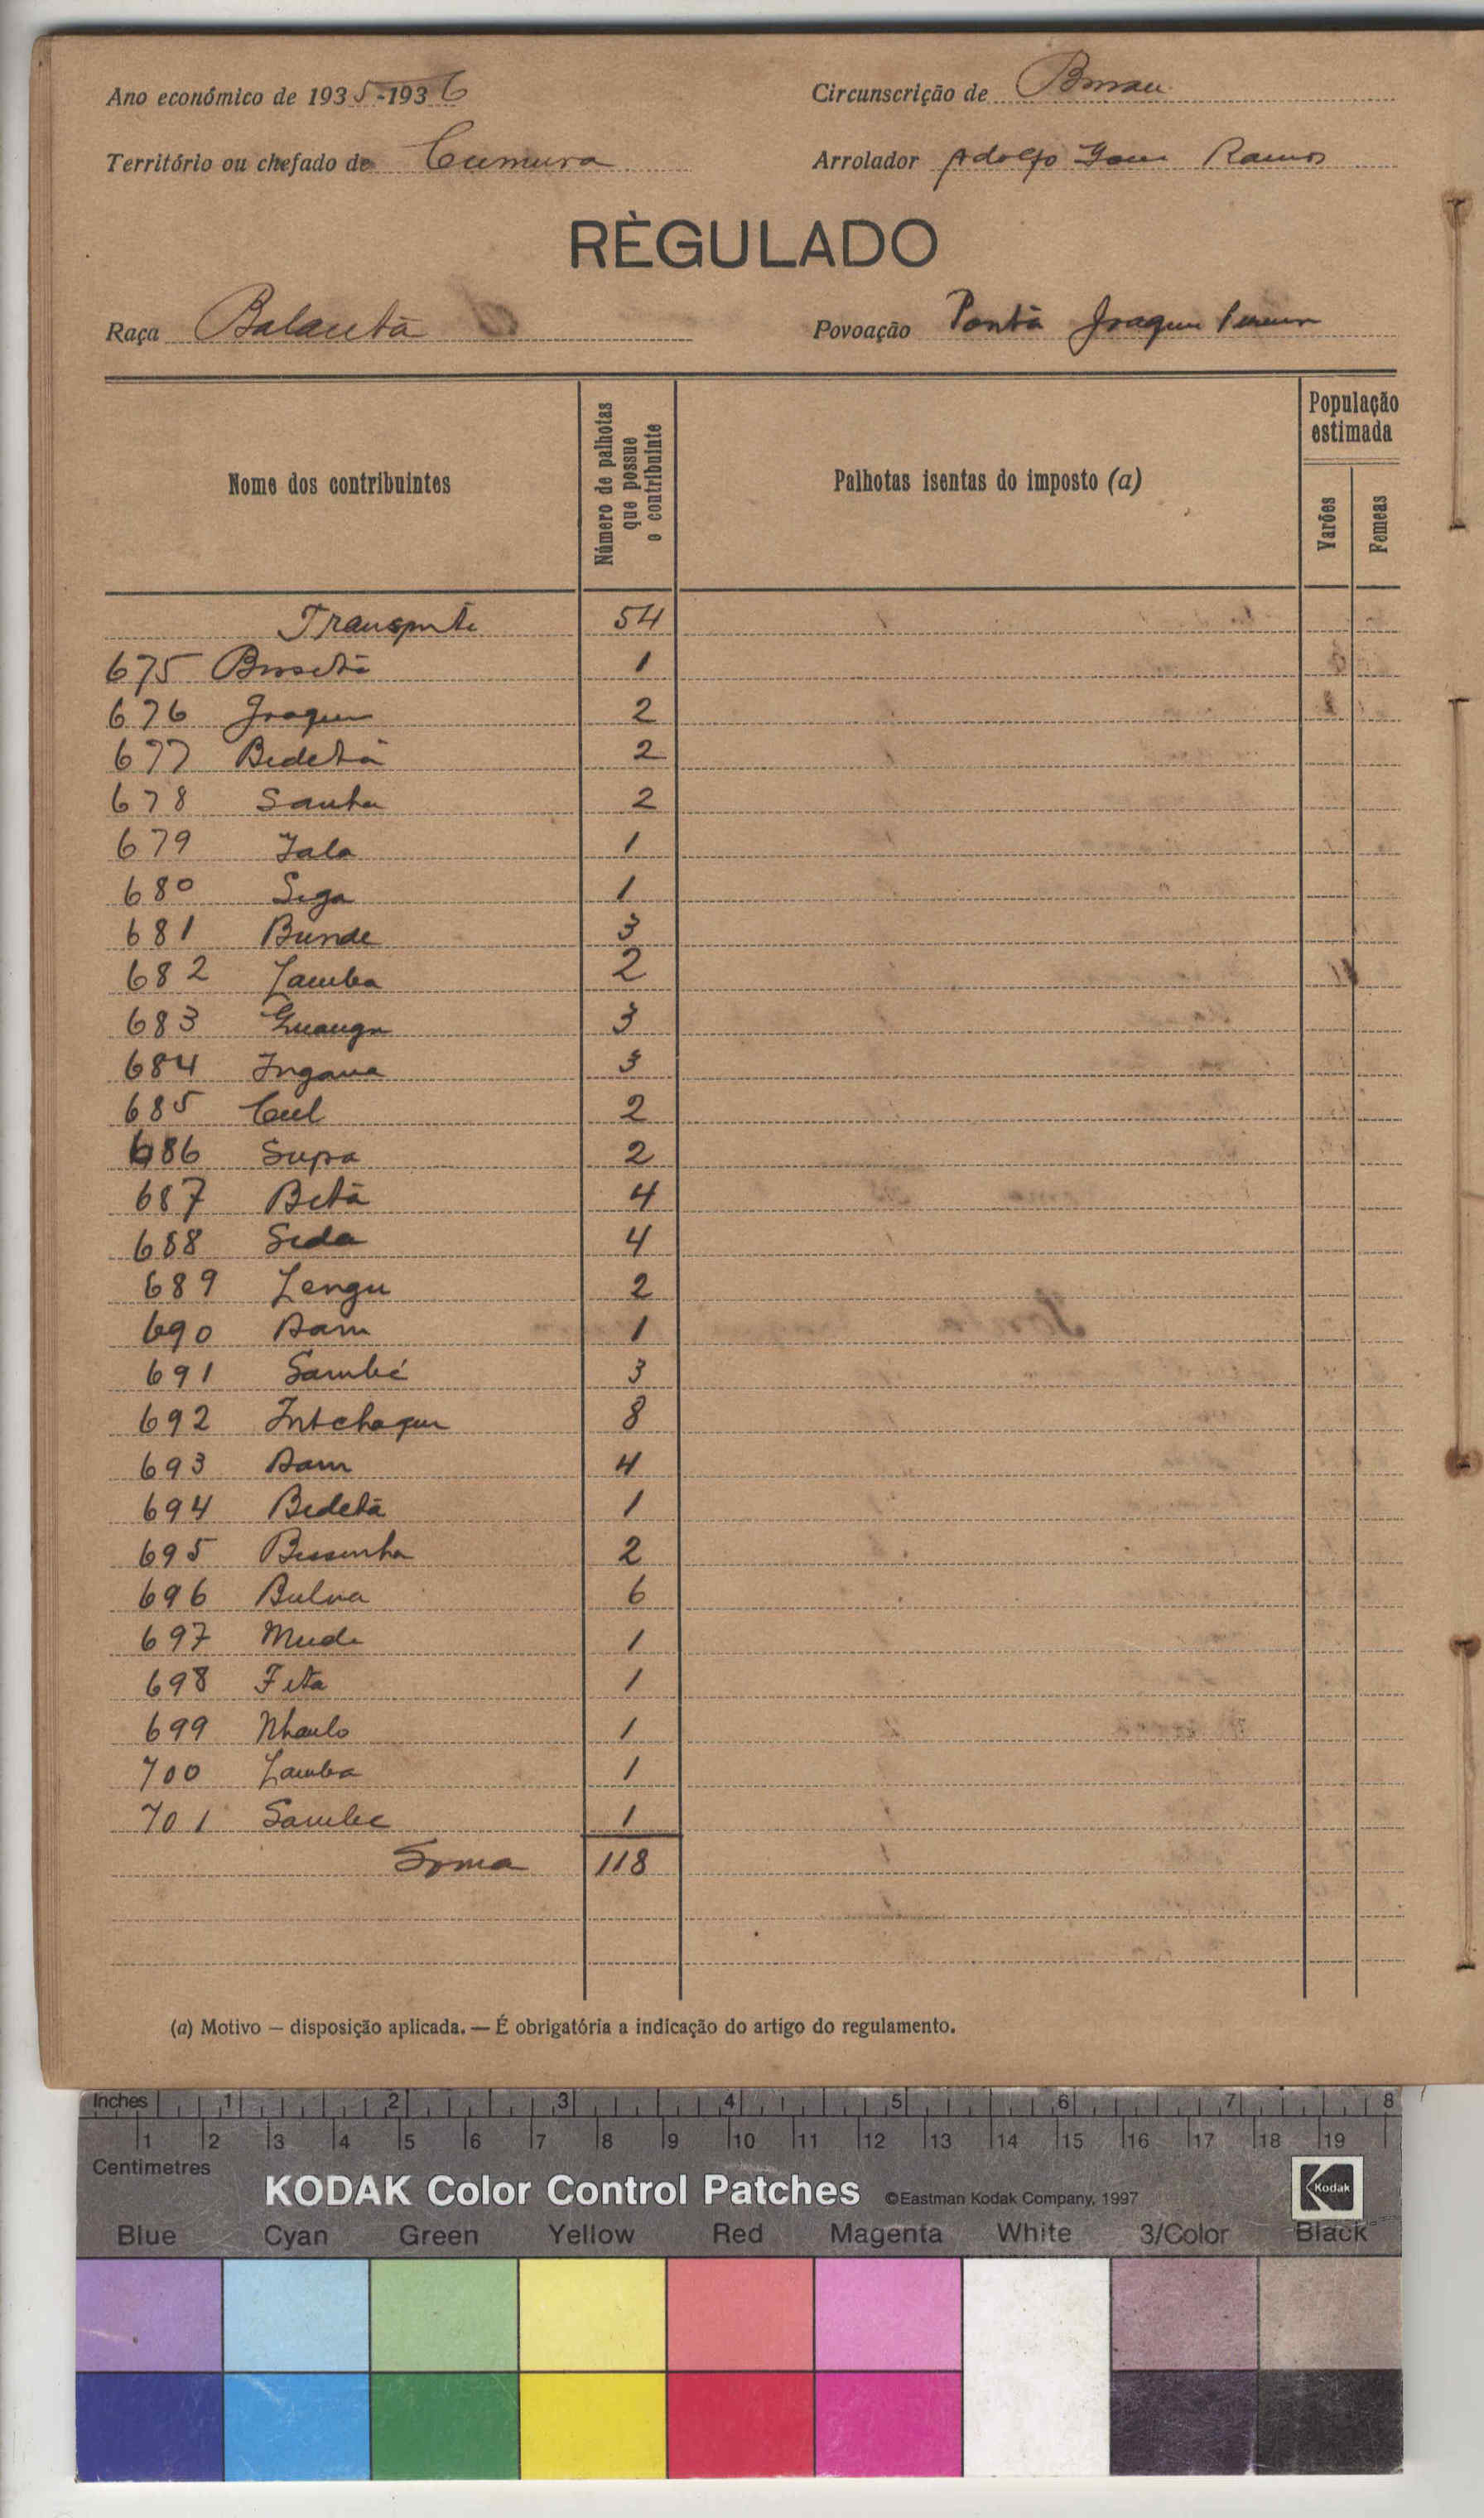 Ano económico de 1935-1936 Circunscrição de Bissau
Território ou chefado de Cumura Arrolador Adolfo Gomes Ramos
RÈGULADO
Raça Balanta Povoação Ponta Joaquim Pereira
Nome dos contribuintes
Número de palhotas que possue o contribuinte
Palhotas isentas do imposto (a)
População estimada
Varões
Femeas
Transporte 54
675 1
676 Joaquim 2
677 Bedeta 2
678 Sanha 2
679 Iala 1
680 Siga 1
681 Bunde 3
682 Lamba 2
683 3
684 Ingana 3
685 Cul 2
686 Supa 2
687 Beta 4
688 Sida 4
689 Zengu 2
690 Dam 1
691 Sambé 3
692 8
693 Dam 4
694 Bedetá 1
695 2
696 6
697 Mude 1
698 Fita 1
699 1
700 Lamba 1
701 Sambe 1
Soma 118
(a) Motivo — disposição aplicada. — É obrigatória a indicação do artigo do regulamento.
Inches 1 2 3 4 5 6 7 8
1 2 3 4 5 6 7 8 9 10 11 12 13 14 15 16 17 18 19
Centimetres
KODAK Color Control Patches ©Eastman Kodak Company, 1997 Kodak
Blue Cyan Green Yellow Red Magenta White 3/Color Black